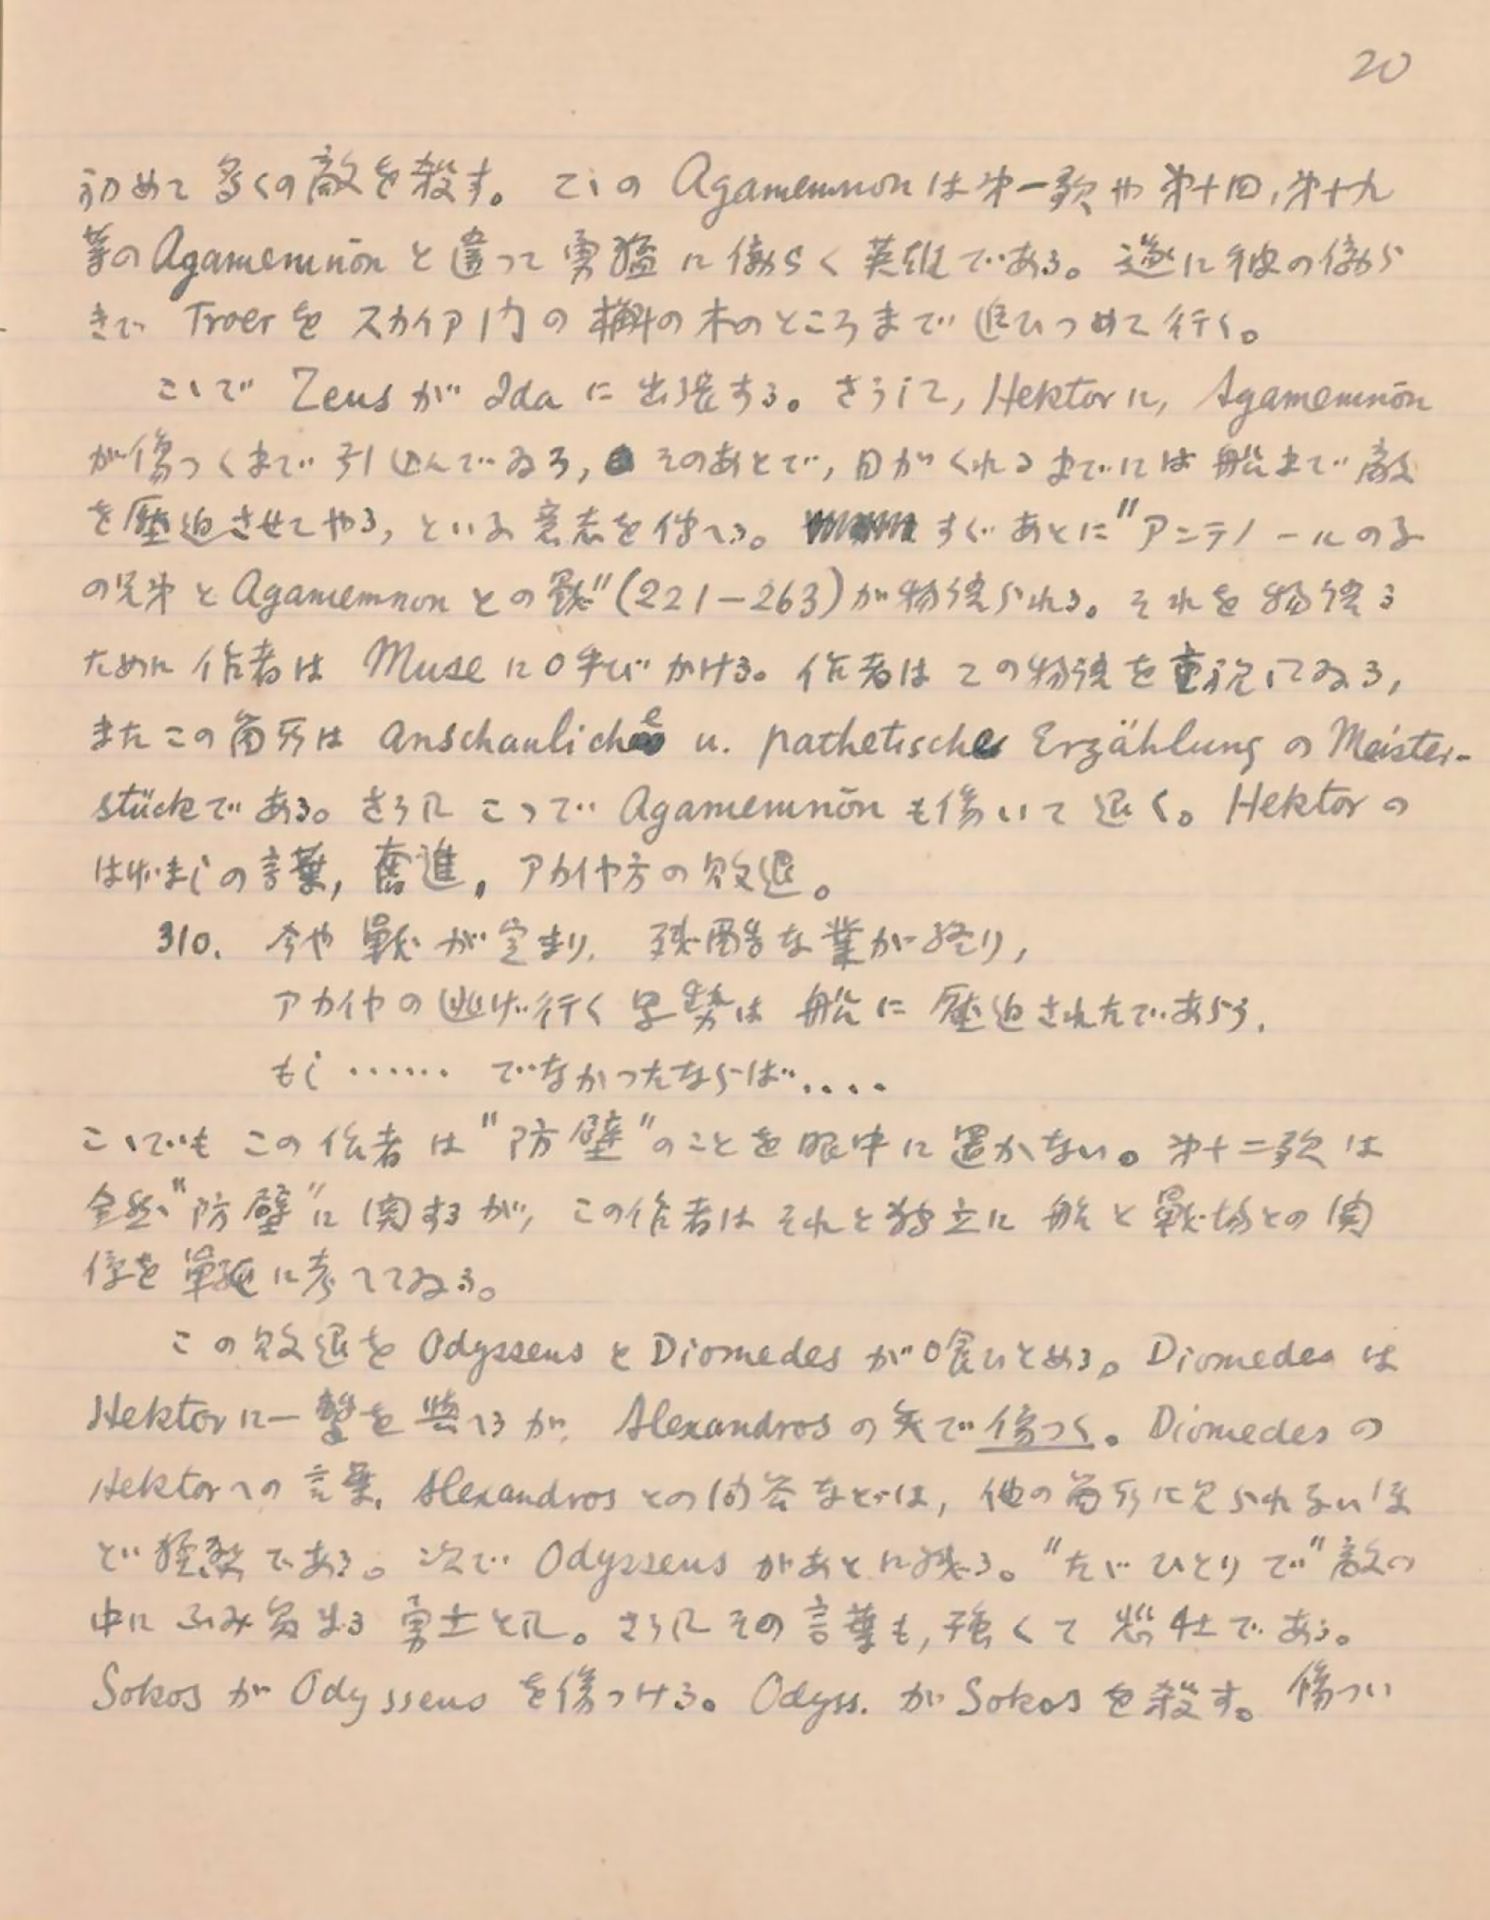 20
初めて多くの敵を殺す。こゝの Agamemnon は第一歌や第十四,第十九
等の Agamemnōn と違って勇猛に働らく英雄である。遂に彼の働ら
きで Troer を スカイア門の槲の木のところまで追ひつめて行く。
こゝで Zeus が Ida に出張する。さうして, Hektor に, Agamemnōn
が傷つくまで引込んでゐろ, そのあとで, 日がくれるまでには船まで敵
を壓迫させてやる, といふ意志を伝へる。 すぐあとに"アンテノールの子
の兄弟と Agamemnon との戰"(221—263)が物語られる。それを物語る
ために作者は Muse に呼びかける。作者はこの物語を重視してゐる,
またこの箇所は anschauliche u. pathetische Erzählung の Meister-
stückである。さうしてこゝで Agamemnōn も傷いて退く。Hektor の
はげましの言葉, 奮進, アカイヤ方の敗退。
310. 今や戰が定まり, 残酷な業が終り,
アカイヤの逃げ行く軍勢は 船に 壓迫されたであらう,
もし …… でなかったならば....
こゝでもこの作者は"防壁"のことを眼中に置かない。第十二歌は
全然"防壁"に関するが, この作者はそれと独立に船と戰場との関
係を單純に考へてゐる。
この敗退を Odysseus と Diomedes が喰ひとめる。Diomedes は
Hektor に一撃を與へるが, Alexandros の矢で傷つく。Diomedes の
Hektor への言葉, Alexandros との問答などは, 他の箇所に見られないほ
ど猛烈である。次で Odysseus があとに残る。"たゞひとりで"敵の
中にふみ留まる勇士として。さうしてその言葉も, 強くて悲壮である。
Sokos が Odysseus を傷つける。Odyss. が Sokos を殺す。傷つい